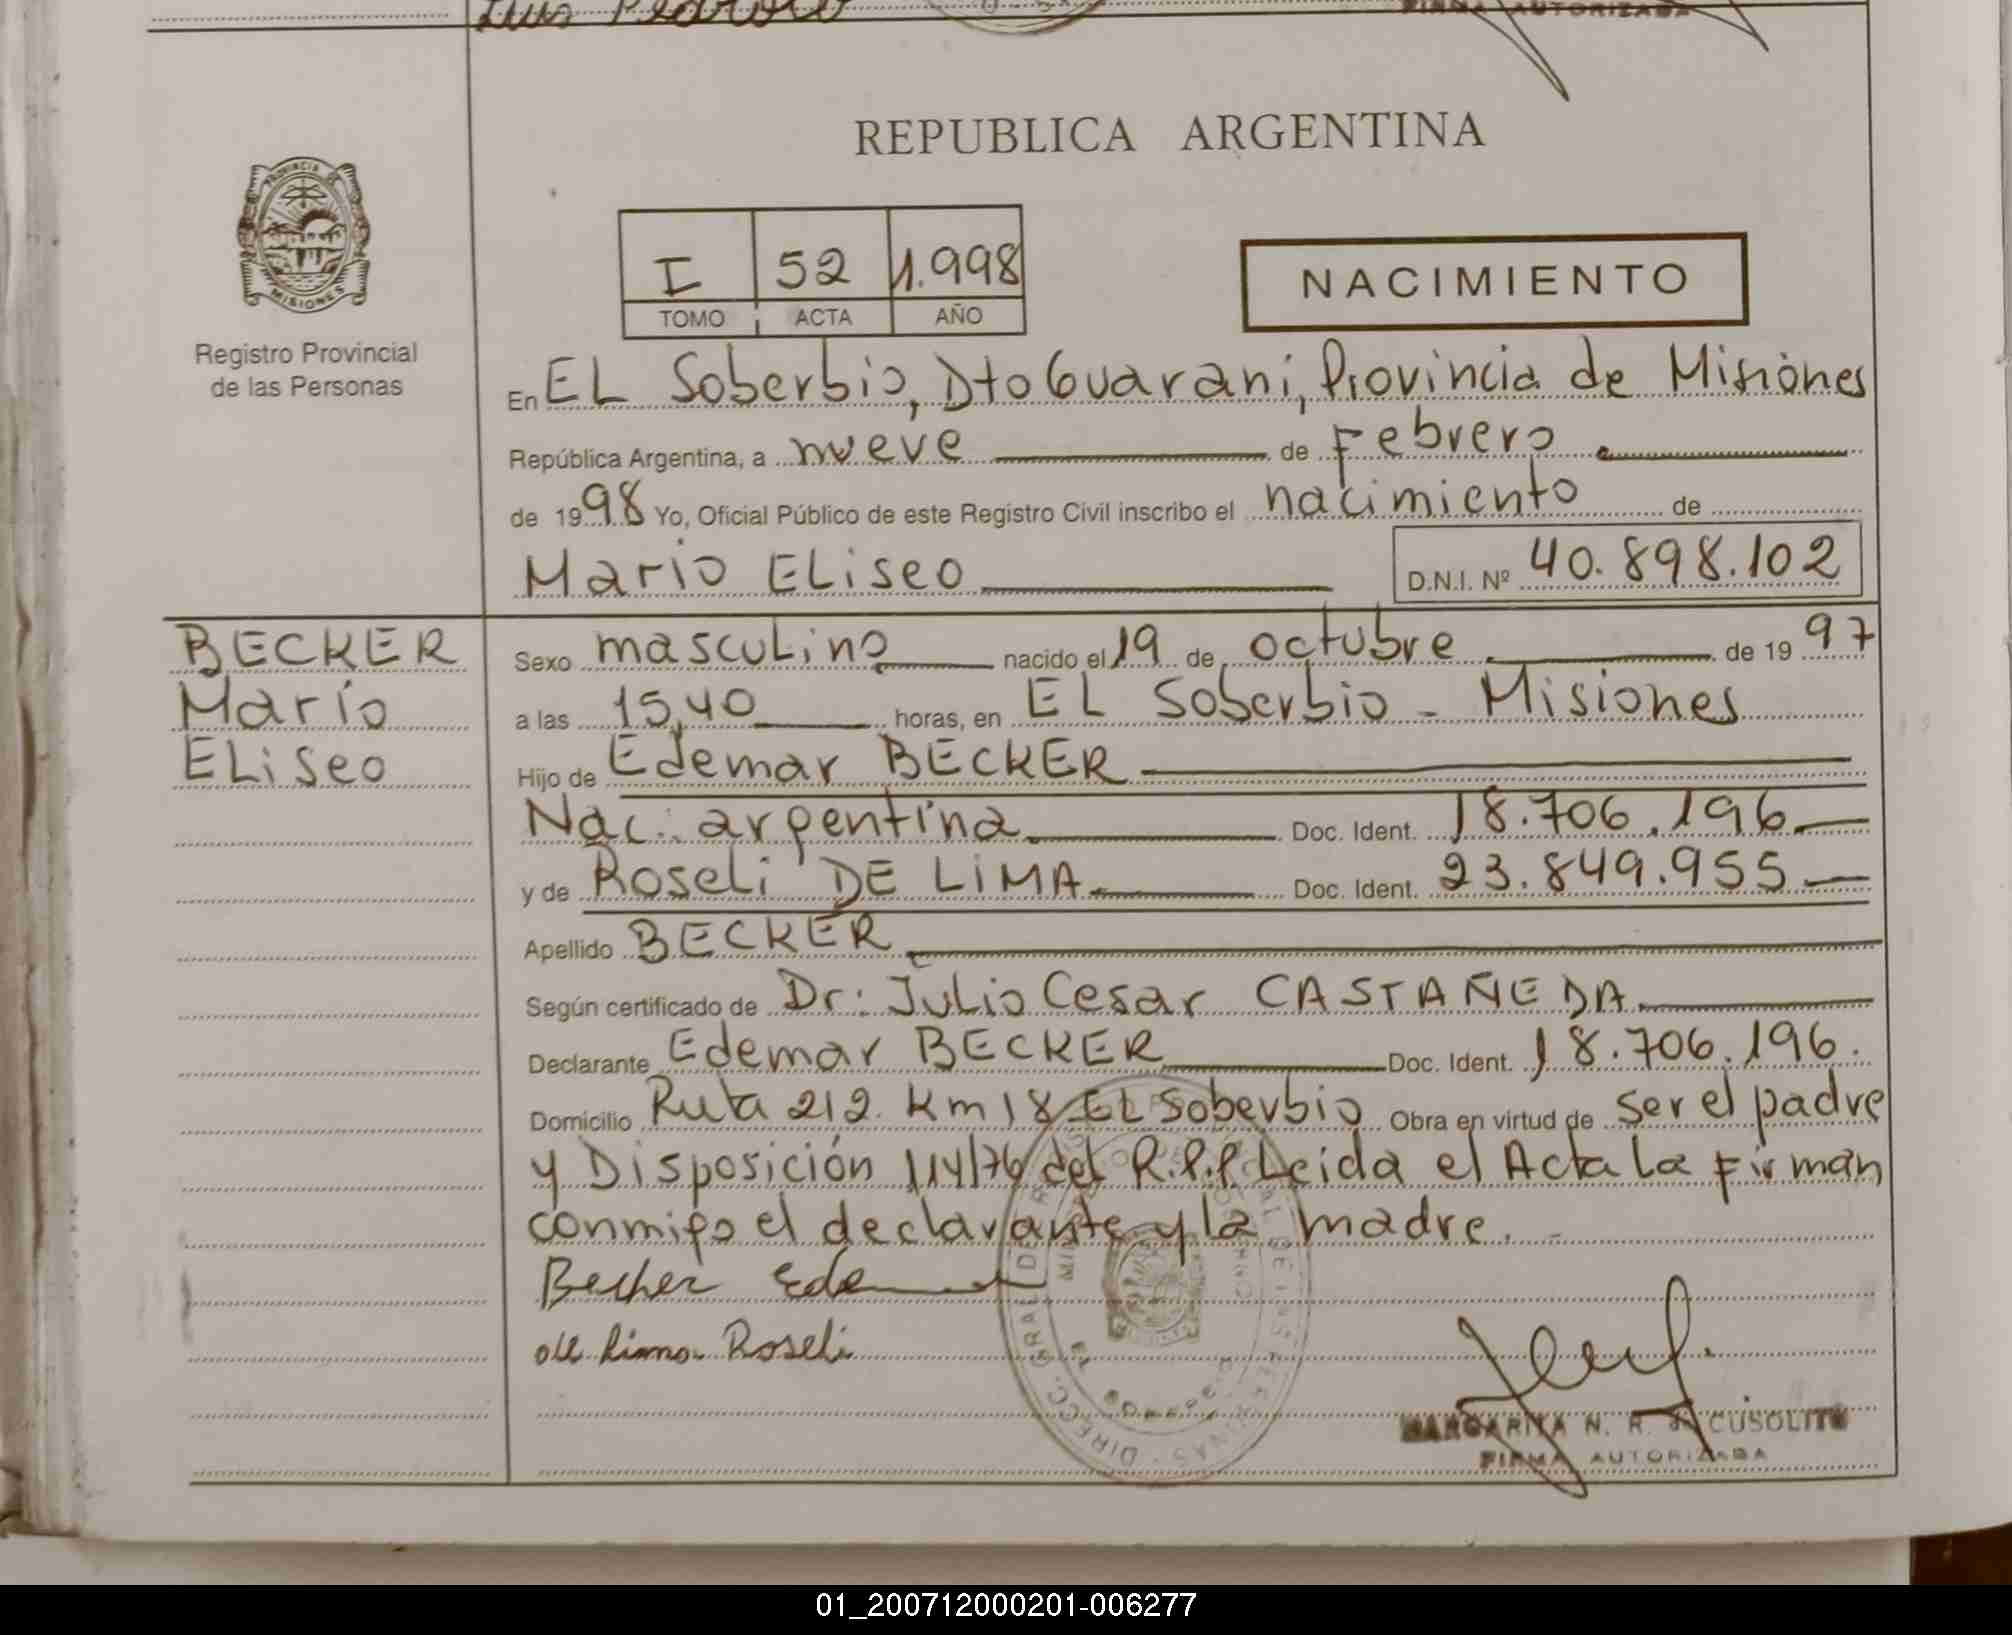 Luis Pedroso
FIRMA AUTORIZADA
REPUBLICA ARGENTINA
PROVINCIA DE
MISIONES
Registro Provincial
de las Personas
I 52 1.998
TOMO ACTA AÑO
NACIMIENTO
En EL Soberbio, Dto Guarani, Provincia de Misiones
República Argentina, a nueve de Febrero
de 1998 Yo, Oficial Público de este Registro Civil inscribo el nacimiento de
Mario ELiseo D.N.I. Nº 40.898.102
BECKER
Mario
ELiseo
Sexo masculino nacido el 19 de octubre de 1997
a las 15,40 horas, en EL Soberbio - Misiones
Hijo de Edemar BECKER
Nac: argentina Doc. Ident. 18.706.196
y de Roseli DE LIMA Doc. Ident. 23.849.955
Apellido BECKER
Según certificado de Dr: Julio Cesar CASTAÑEDA
Declarante Edemar BECKER Doc. Ident. 18.706.196.
Domicilio Ruta 212 Km 18 EL Soberbio Obra en virtud de ser el padre
y Disposición 114/76 del R.P.P Leida el Acta La Firman
conmigo el declarante y la madre.
Becker Edemar
de Lima Roseli
MARGARITA N. R. CUSOLITO
FIRMA AUTORIZADA
01_200712000201-006277